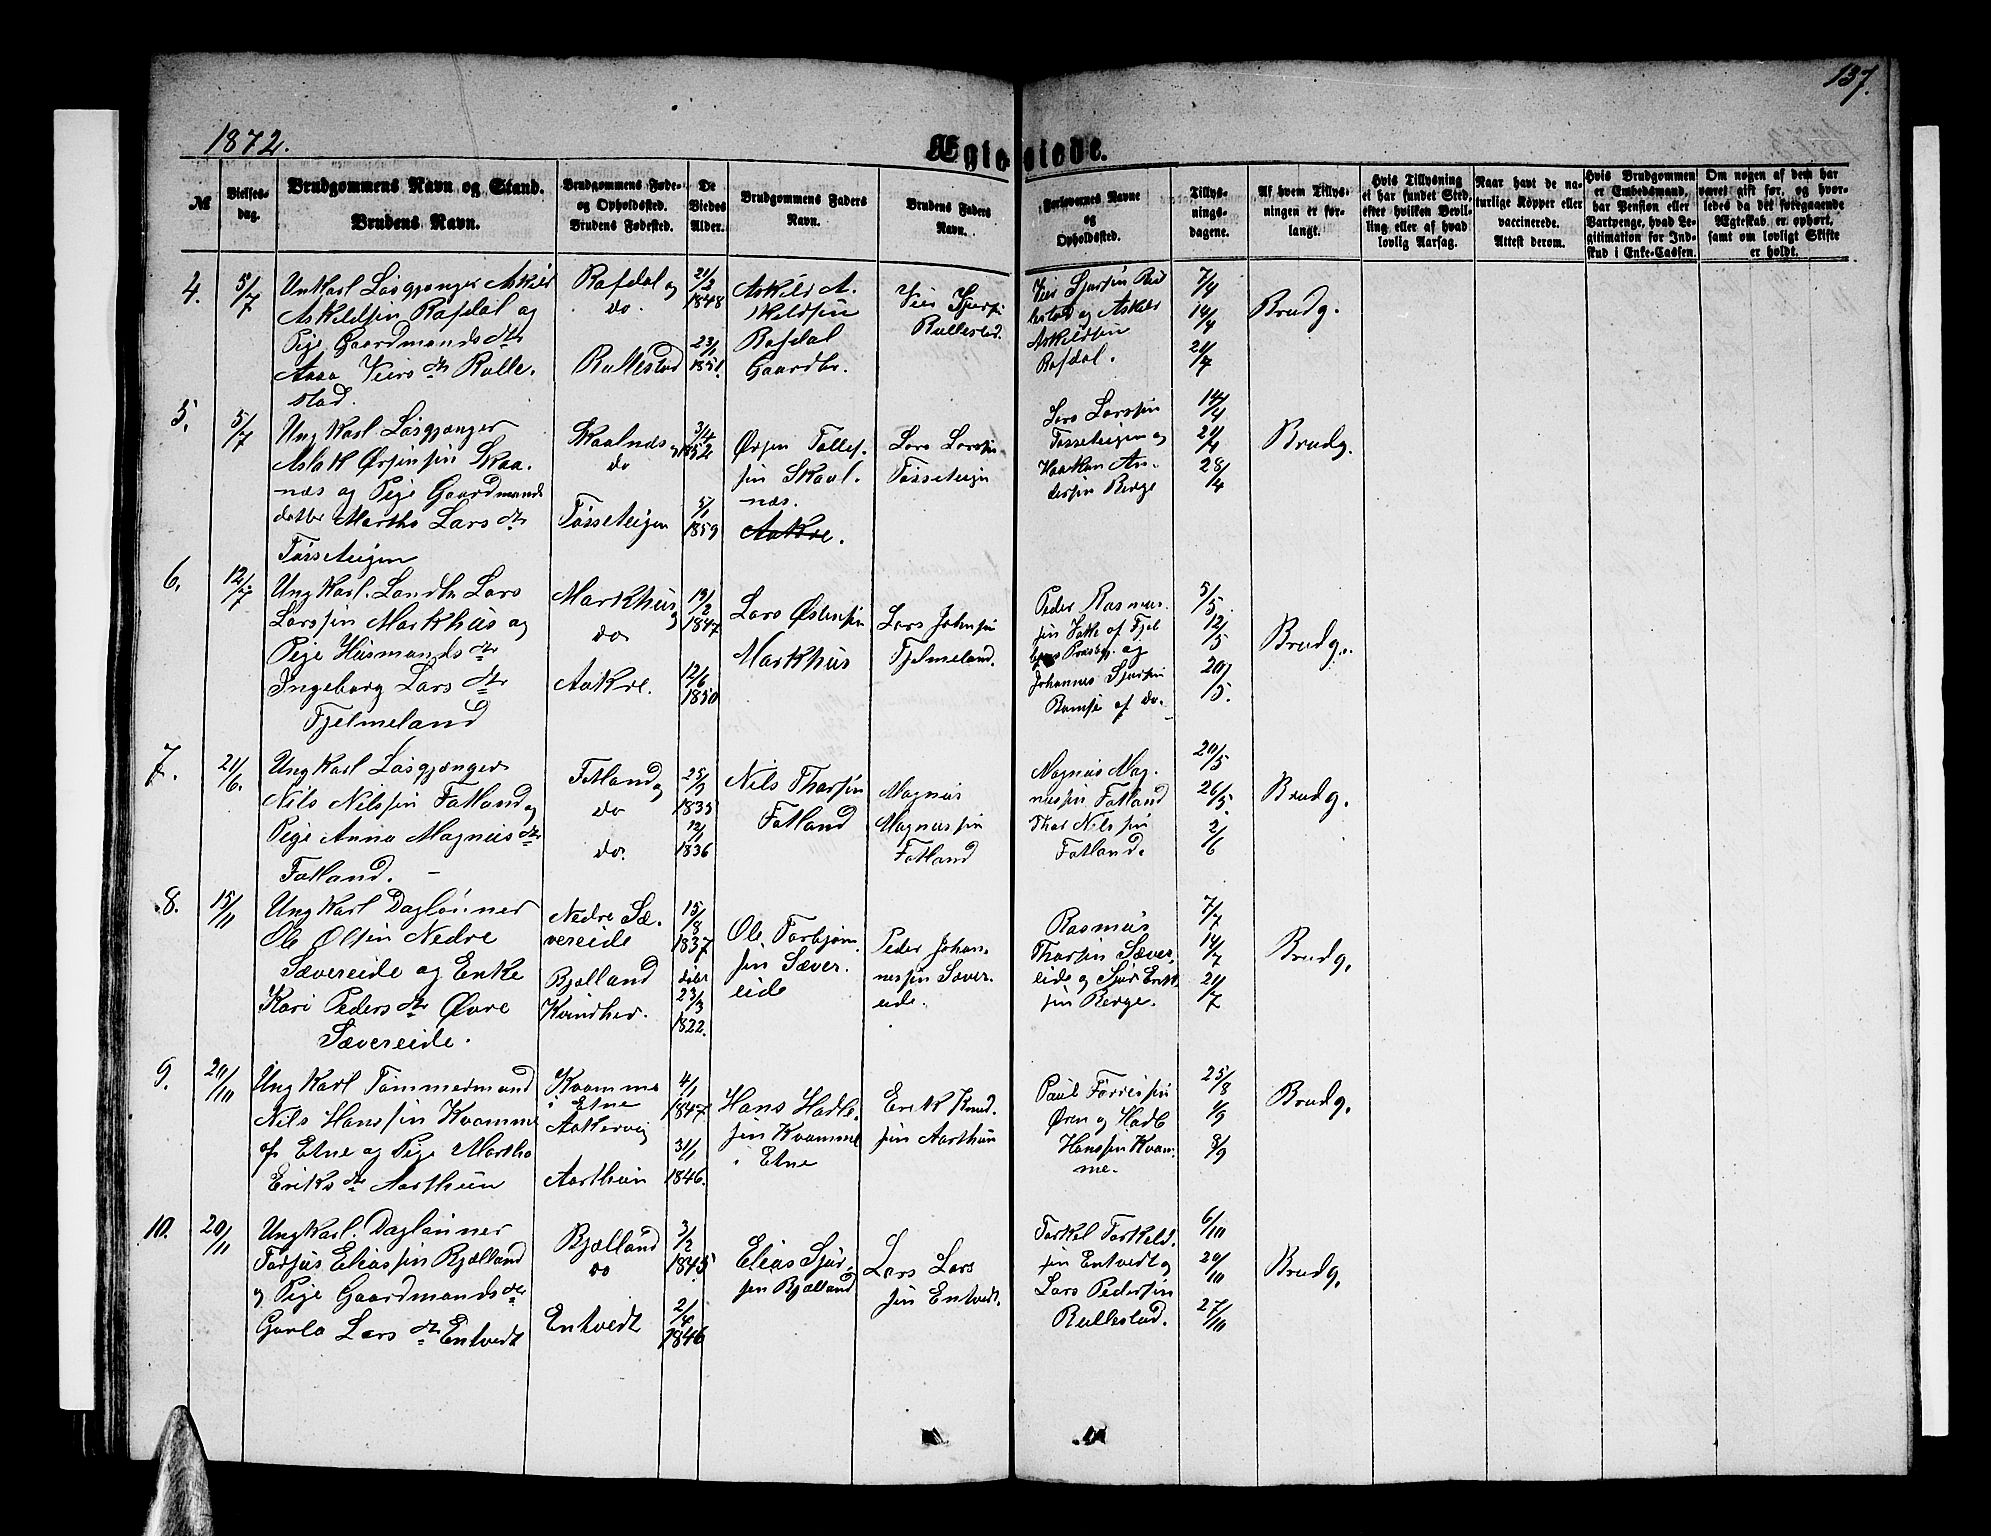 137.
1872.
Ægteviede.
№
Vielses-
dag.
Brudgommens Navn og Stand.
Brudens Navn.
Brudgommens Føde-
og Opholdssted.
Brudens Fødested.
De
Viedes
Alder.
Brudgommens Faders
Navn.
Brudens Faders
Navn.
Forlovernes Navne
og
Opholdssted.
Tillys-
nings-
dagene.
Af hvem Tillys-
ningen er for-
langt.
Hvis Tillysning
ei har fundet Sted,
efter hvilken Bevil-
ling eller af hvad
lovlig Aarsag.
Naar havt de na-
turlige Kopper eller
vaccinerede.
Attest derom.
Hvis Brudgommen
er Embedsmand,
har Pension eller
Vartpenge, hvad Le-
gitimation for Ind-
skud i Enke-Cassen.
Om nogen af dem har
været gift før, og hvor-
ledes da det foregaaende
Ægteskab er ophørt,
samt om lovligt Skifte
er holdt.
4.
5/7
Unkarl Løsgjænger Askild
Askildsen Rafdal og
Pige Gaardmandsdtr
Aasa Veiers dtr Rulle-
stad.
Rafdal og
do.
Rullestad
21/2
1848
23/1
1851.
Askild A.
skildsen
Rafdal
Gaardbr.
Veier Sjurs.
Rullestad.
Veier Sjursen Rul
lestad og Askild
Askildsen
Rafdal.
7/4
14/4
21/4
Brudg.
5.
5/7
Ungkarl Løsgjænger
Aslak Ørjensen Skaa-
næs og Pige Gaardmands
datter Martha Lars dtr
Tøsseteigen
Skaalnæs og
do
Tøsseteigen
3/4
1852
5/1
1859
Ørjen Tollef-
sen Skaal-
næs.
Aakre.
Lars Larssen
Tøsseteigen
Lars Larssen
Tøsseteigen og
Haakon An-
dersen Berge
14/4
21/4
28/4
Brudg.
6.
12/7
Ungkarl. Landbr. Lars
Larssen Markhus og
Pige Husmandsdtr
Ingeborg Lars dtr
Fjelmeland
Markhus og
do
Aakre.
19/2
1847
12/6
1850
Lars Østensen
Markhus
Lars Johnsen
Fjelmeland.
Peder Rasmus-
sen Vatle af Fjel
bergs Præstegj. og
Johannes Sjursen
Ramse af do.
5/5
12/5
20/5.
Brudg.
7.
21/6.
Ungkarl Løsgjænger
Nils Nilssen Fatland og
Pige Anna Magnus dtr
Fatland. -
Fatland og
do
do.
25/3
1835
12/1
1836
Nils Thorsen
Fatland
Magnus
Magnussen
Fatland
Magnus Mag-
nussen Fatland
Thor Nilssen
Fatland.
20/5
26/5
2/6
Brudg.
8.
15/11
Ungkarl Dagløinner
Ole Olsen Nedre
Sævereide og Enke
Kari Peders dtr Øvre
Sævereide.
Nedre Sæ-
vereide
Bjælland
Kvindher.
15/8
1837
23/3
1822.
Ole Torbjørn
sen Sæver-
eide
Peder Johan-
nessen Sæver-
eide.
Rasmus
Thorsen Sæver-
eide og Sjur Erik
sen Berge.
7/7
14/7
21/7
Brudg.
9.
20/10
Ungkarl Tømmermand
Nils Hanssen Kvamme
af Etne og Pige Martha
Eriks dtr Aarthun
Kvamme
i Etne
Aakervig
Aarthun
4/1
1847.
31/1
1846.
Hans Hadle-
sen Kvamme
i Etne
Erik Knud-
sen Aarthun
Paul Torressen
Øren og Hadle
Hanssen Kvam-
me.
25/8
1/9
8/9
Brudg.
10.
20/11
Ungkarl. Daglønner
Torjus Eliassen Bjælland
og Pige Gaardmandsdtr
Guro Lars dtr Entvedt
Bjælland
do
Entvedt
3/2
1845
2/4
1846
Elias Sjur-
sen Bjælland
Lars Lars
sen Entvedt.
Torkel Torkeld-
sen Entvedt og
Lars Pedersen
Rullestad.
6/10
20/10
27/10
Brudg.